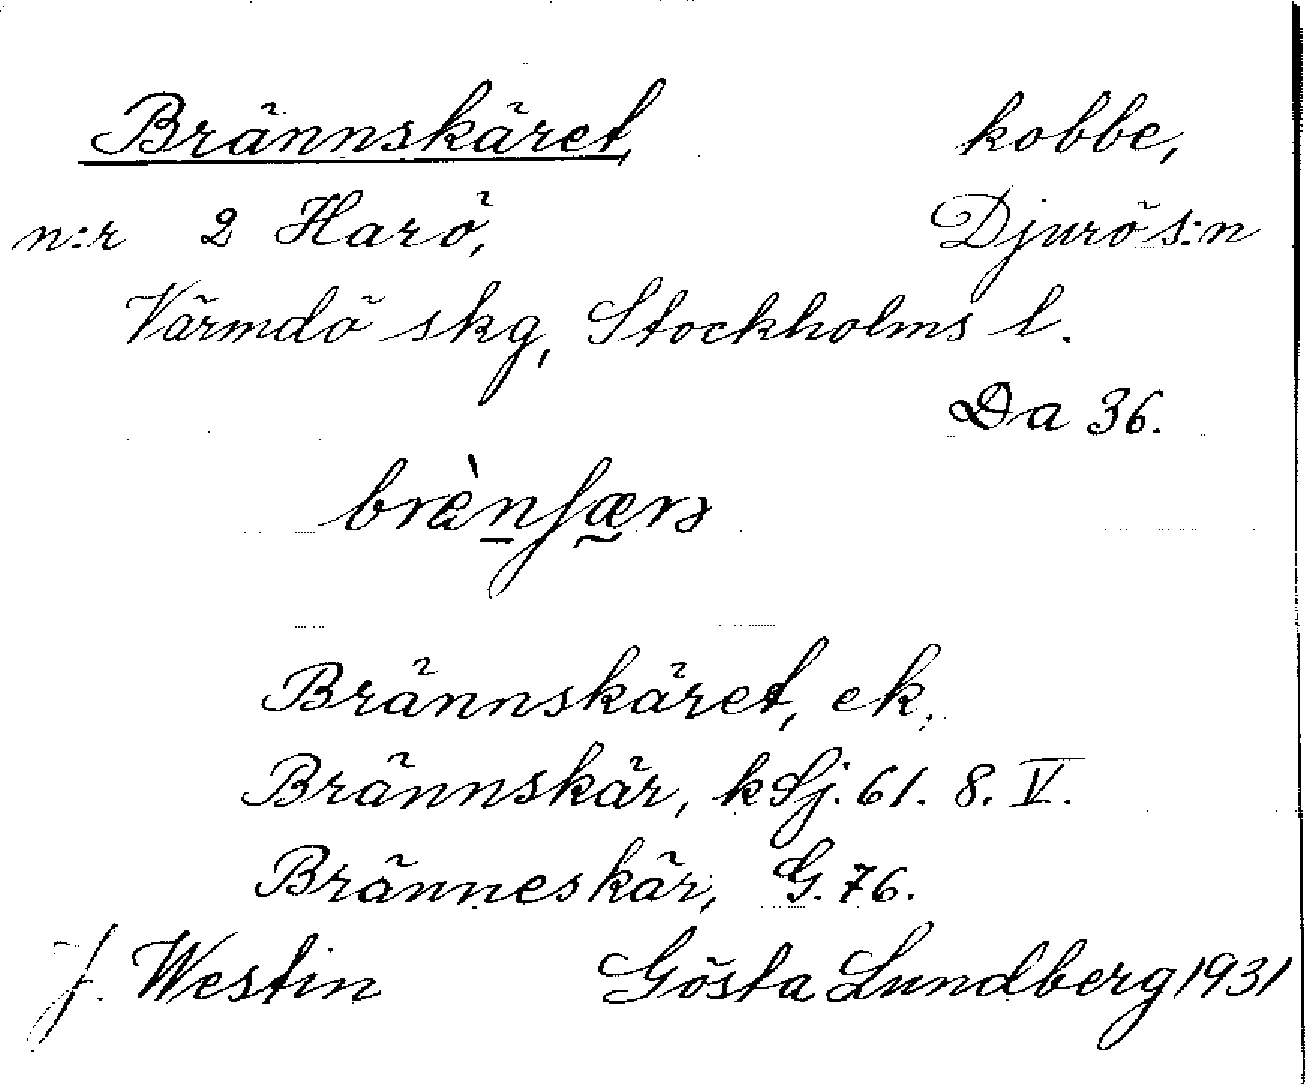 Brännskäret, kobbe,
n:r 2 Harö, Djurö s:n
Värmdö skg, Stockholms l.
Da 36.
brènʃærə
Brännskäret, ek,
Brännskär, k Sj. 61. 8. V.
Bränneskär, G. 76.
J. Westin Gösta Lundberg 1931